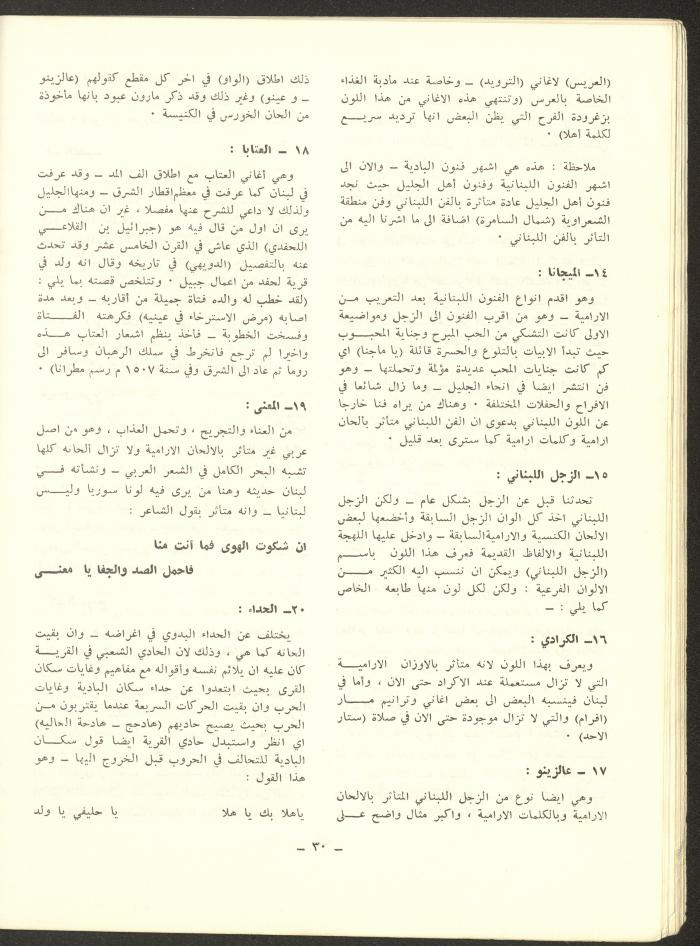 (العريس) لاغاني (الترويد) ــ وخاصة عند مأدبة الغذاء
الخاصة بالعرس (وتنتهي هذه الاغاني من هذا اللون
بزغرودة الفرح التي يظن البعض انها ترديد سريع
لكلمة أهلا) ٠
ملاحظة : هذه هي اشهر فنون البادية ــ والان الى
اشهر الفنون اللبنانية وفنون أهل الجليل حيث نجد
فنون أهل الجليل عادة متأثرة بالفن اللبناني وفن منطقة
الشعراوية (شمال السامرة) اضافة الى ما اشرنا اليه من
التأثر بالفن اللبناني ٠
١٤ــ الميجانا :
وهو اقدم انواع الفنون اللبنانية بعد التعريب مــن
الارامية ــ وهو من اقرب الفنون الى الزجل ومواضيعة
الاولى كانت التشكي من الحب المبرح وجناية المحبــوب
حيث تبدأ الابيات بالتلوع والحسرة قائلة (يا ماجنا) اي
كم كانت جنايات المحب عديدة مؤلمة وتحملتها ــ وهو
فن انتشر ايضا في انحاء الجليل ــ وما زال شائعا في
الافراح والحفلات المختلفة ٠ وهناك من يراه فنا خارجا
عن اللون اللبناني بدعوى ان الفن اللبناني متأثر بألحان
ارامية وكلمات ارامية كما سترى بعد قليل ٠
١٥ــ الزجل اللبناني :
تحدثنا قبل عن الزجل بشكل عام ــ ولكن الزجل
اللبناني اخذ كل الوان الزجل السابقة وأخضعها لبعض
الالحان الكنسية والاراميةالسابقة ــ وادخل عليها اللهجة
اللبنانية والالفاظ القديمة فعرف هذا اللون باســم
(الزجل اللبناني) ويمكن ان ننسب اليه الكثير مــن
الالوان الفرعية : ولكن لكل لون منها طابعه الخاص
كما يلي : ــ
١٦ــ الكرادي :
ويعرف بهذا اللون لانه متأثر بالاوزان الاراميــة
التي لا تزال مستعملة عند الاكراد حتى الان ، وأما في
لبنان فينسبه البعض الى بعض اغاني وترانيم مــار
(افرام) والتي لا تزال موجودة حتى الان في صلاة (ستار
الاحد) ٠
١٧ ــ عالزينو :
وهي ايضا نوع من الزجل اللبناني المتأثر بالالحان
الارامية وبالكلمات الارامية ، واكبر مثال واضح علــى
ذلك اطلاق (الواو) في اخر كل مقطع كقولهم (عالزينو
ــ و عينو) وغير ذلك وقد ذكر مارون عبود بانها مأخوذة
من الحان الخورس في الكنيسة ٠
١٨ ــ العتابا :
وهي أغاني العتاب مع اطلاق الف المد ــ وقد عرفت
في لبنان كما عرفت في معظم‌اقطار الشرق ــ ومنهاالجليل
ولذلك لا داعي للشرح عنها مفصلا ، غير ان هناك مــن
يرى ان اول من قال فيه هو (جبرائيل بن القلاعــي
اللحفدي) الذي عاش في القرن الخامس عشر وقد تحدث
عنه بالتفصيل (الدويهي) في تاريخه وقال انه ولد في
قرية لحفد من اعمال جبيل ٠ وتتلخص قصته بما يلي :
(لقد خطب له والده فتاة جميلة من أقاربه ــ وبعد مدة
اصابه (مرض الاسترخاء في عينيه) فكرهته الفتــاة
وفسخت الخطوبة ــ فأخذ ينظم اشعار العتاب هــذه
واخيرا لم ترجع فانخرط في سلك الرهبان وسافر الى
روما ثم عاد الى الشرق وفي سنة ١٥٠٧ م رسم مطرانا) ٠
١٩ــ المعنى :
من العناء والتجريح ، وتحمل العذاب ، وهو من اصل
عربي غير متأثر بالالحان الارامية ولا تزال ألحانه كلها
تشبه البحر الكامل في الشعر العربي ــ ونشأته فــي
لبنان حديثه وهنا من يرى فيه لونا سوريا وليــس
لبنانيا ــ وانه متأثر بقول الشاعر :
ان شكوت الهوى فما أنت منا
فاحمل الصد والجفا يا معنــى
٢٠ــ الحداء :
يختلف عن الحداء البدوي في اغراضه ــ وان بقيت
الحانه كما هي ، وذلك لان الحادي الشعبي في القريــة
كان عليه ان يلائم نفسه وأقواله مع مفاهيم وغايات سكان
القرى بحيث ابتعدوا عن حداء سكان البادية وغايات
الحرب وان بقيت الحركات السريعة عندما يقتربون مــن
الحرب بحيث يصيح حاديهم (هادحج ــ هادحة الحاليه)
اي انظر واستبدل حادي القرية ايضا قول سكــان
البادية للتحالف في الحروب قبل الخروج اليها ــ وهو
هذا القول :
ياهلا بك يا هلا يا حليفي يا ولد
ــ ٣٠ ــ